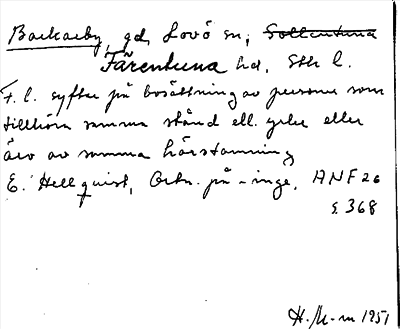 Backarby, gd, Lovö sn, Sollentuna
Färentuna hd, Sthl l.
F. l. syftar på bosättning av personer som
tillhöra samma stånd ell. yrke eller
äro av samma härstamning
E. Hellquist, Ortn. på -inge, ANF 26
s 368
H. M-m 1951